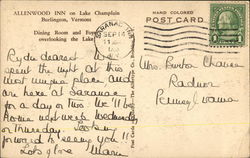 ALLENWOOD INN on Lake Champlain
Burlington, Vermont
Dining Room and
overlooking the Lake
HAND COLORED
POST CARD
SARANAC
SEP 14
11 AM
1
Mrs Burton Chance
Radnor
Pennsylvania
dearest
spent the night at this
most place and
are here at Saranac
for a day or two. We'll be
home next week Wednesday
or Thursday. Looking
forward to seeing you!!
Lots of love